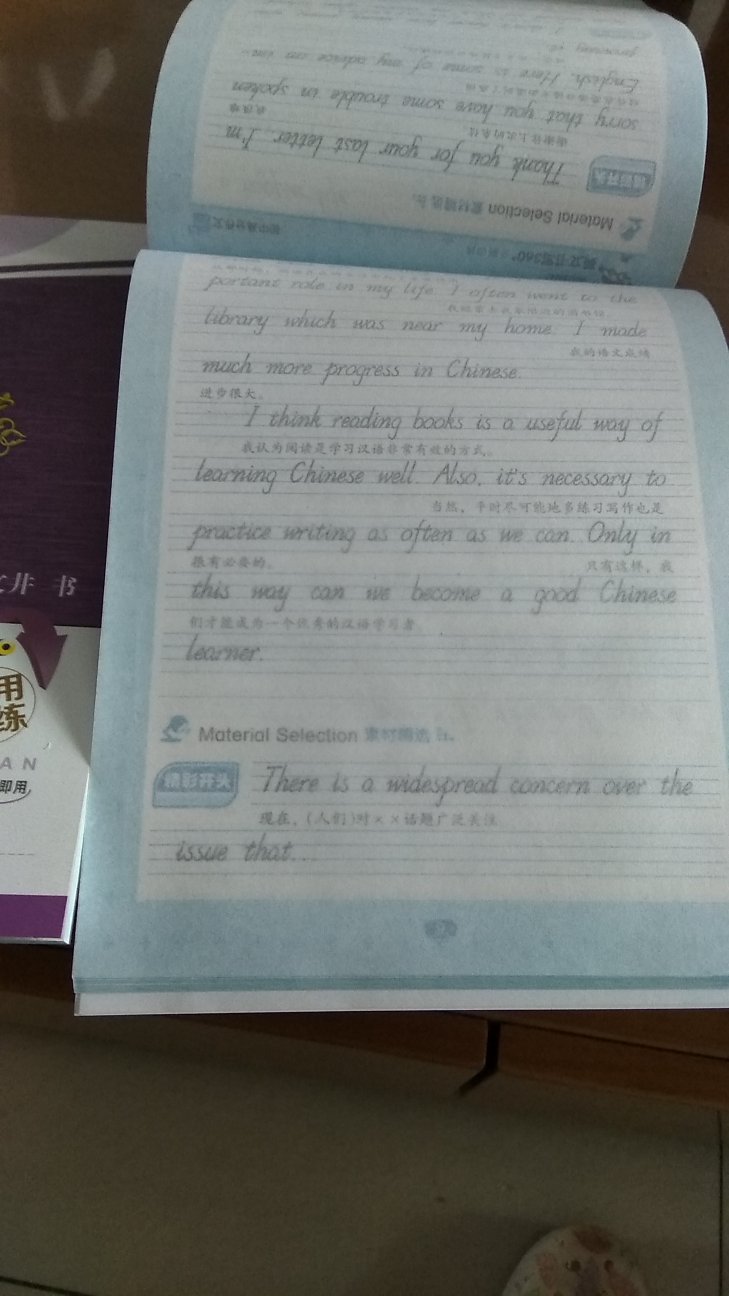 portant role in my life. I often went to the
我经常去我家附近的图书馆
library which was near my home. I made
我的语文成绩
much more progress in Chinese.
进步很大。
I think reading books is a useful way of
我认为阅读是学习汉语非常有效的方式。
learning Chinese well. Also, it's necessary to
当然，平时尽可能地多练习写作也是
practice writing as often as we can. Only in
很有必要的。 只有这样，我
this way can we become a good Chinese
们才能成为一个优秀的汉语学习者
learner.
Material Selection 素材精选
精彩开头 There is a widespread concern over the
现在，(人们)对××话题广泛关注
issue that...
Material Selection 素材精选
精彩开头 Thank you for your last letter. I'm
谢谢你上次的来信
sorry that you have some trouble in spoken
English. Here is some of my advice on im-
proving it.
书
用
练
AN
即用